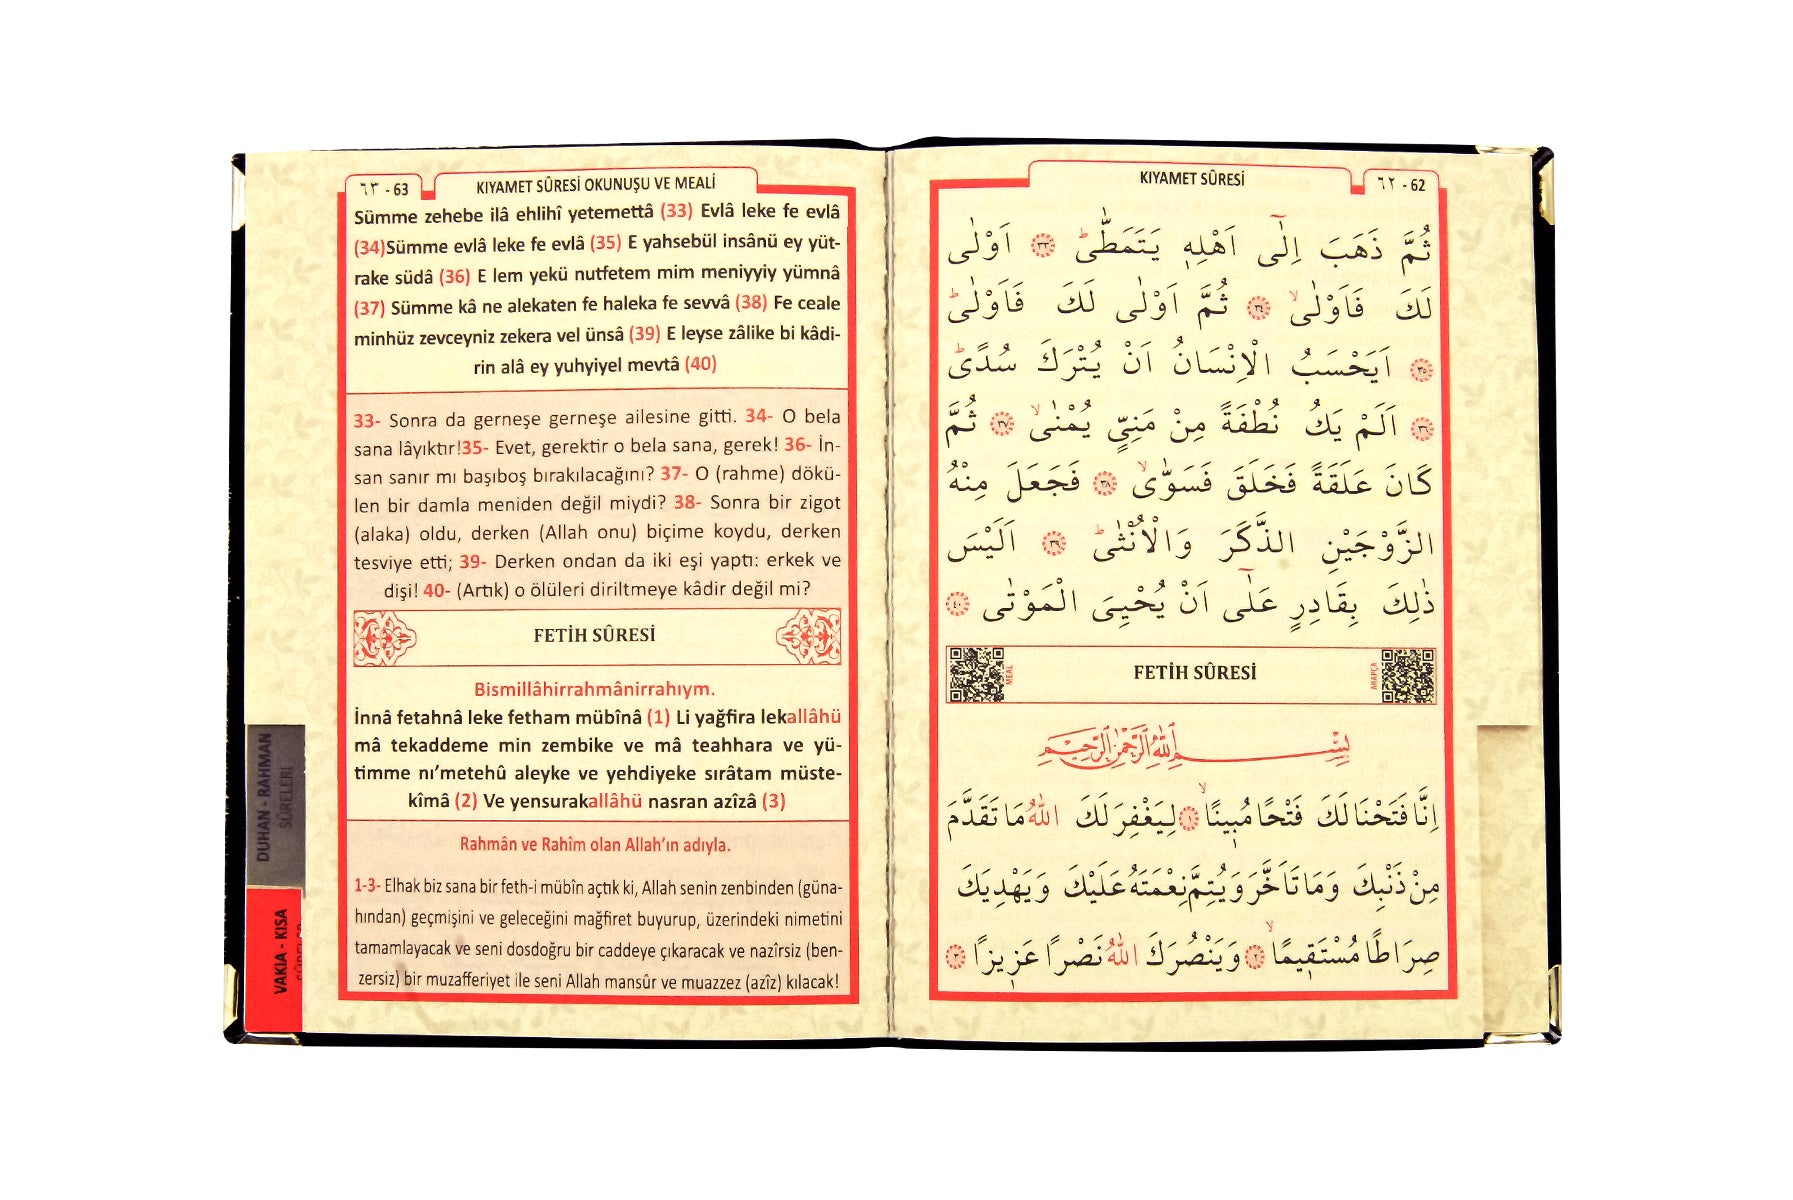 KIYAMET SÛRESİ
٦٢ - 62
ثُمَّ ذَهَبَ اِلٰٓى اَهْلِه۪ يَتَمَطّٰىۜ ﴿٣٣﴾ اَوْلٰى
لَكَ فَاَوْلٰىۙ ﴿٣٤﴾ ثُمَّ اَوْلٰى لَكَ فَاَوْلٰىۜ
﴿٣٥﴾ اَيَحْسَبُ الْاِنْسَانُ اَنْ يُتْرَكَ سُدًىۜ
﴿٣٦﴾ اَلَمْ يَكُ نُطْفَةً مِنْ مَنِيٍّ يُمْنٰىۙ ﴿٣٧﴾ ثُمَّ
كَانَ عَلَقَةً فَخَلَقَ فَسَوّٰىۙ ﴿٣٨﴾ فَجَعَلَ مِنْهُ
الزَّوْجَيْنِ الذَّكَرَ وَالْاُنْثٰىۜ ﴿٣٩﴾ اَلَيْسَ
ذٰلِكَ بِقَادِرٍ عَلٰٓى اَنْ يُحْيِيَ الْمَوْتٰى ﴿٤٠﴾
MEAL
FETİH SÛRESİ
ARAPÇA
بِسْمِ اللّٰهِ الرَّحْمٰنِ الرَّحِيمِ
اِنَّا فَتَحْنَا لَكَ فَتْحًا مُب۪ينًاۙ ﴿١﴾ لِيَغْفِرَ لَكَ اللّٰهُ مَا تَقَدَّمَ
مِنْ ذَنْبِكَ وَمَا تَاَخَّرَ وَيُتِمَّ نِعْمَتَهُ عَلَيْكَ وَيَهْدِيَكَ
صِرَاطًا مُسْتَق۪يمًاۙ ﴿٢﴾ وَيَنْصُرَكَ اللّٰهُ نَصْرًا عَز۪يزًا ﴿٣﴾
٦٣ - 63
KIYAMET SÛRESİ OKUNUŞU VE MEALİ
Sümme zehebe ilâ ehlihî yetemettâ (33) Evlâ leke fe evlâ
(34)Sümme evlâ leke fe evlâ (35) E yahsebül insânü ey yüt-
rake südâ (36) E lem yekü nutfetem mim meniyyiy yümnâ
(37) Sümme kâ ne alekaten fe haleka fe sevvâ (38) Fe ceale
minhüz zevceyniz zekera vel ünsâ (39) E leyse zâlike bi kâdi-
rin alâ ey yuhyiyel mevtâ (40)
33- Sonra da gerneşe gerneşe ailesine gitti. 34- O bela
sana lâyıktır!35- Evet, gerektir o bela sana, gerek! 36- İn-
san sanır mı başıboş bırakılacağını? 37- O (rahme) dökü-
len bir damla meniden değil miydi? 38- Sonra bir zigot
(alaka) oldu, derken (Allah onu) biçime koydu, derken
tesviye etti; 39- Derken ondan da iki eşi yaptı: erkek ve
dişi! 40- (Artık) o ölüleri diriltmeye kâdir değil mi?
FETİH SÛRESİ
Bismillâhirrahmânirrahıym.
İnnâ fetahnâ leke fetham mübînâ (1) Li yağfira lekallâhü
mâ tekaddeme min zembike ve mâ teahhara ve yü-
timme nı’metehû aleyke ve yehdiyeke sırâtam müste-
kîmâ (2) Ve yensurakallâhü nasran azîzâ (3)
Rahmân ve Rahîm olan Allah’ın adıyla.
1-3- Elhak biz sana bir feth-i mübîn açtık ki, Allah senin zenbinden (güna-
hından) geçmişini ve geleceğini mağfiret buyurup, üzerindeki nimetini
tamamlayacak ve seni dosdoğru bir caddeye çıkaracak ve nazîrsiz (ben-
zersiz) bir muzafferiyet ile seni Allah mansûr ve muazzez (azîz) kılacak!
DUHAN - RAHMAN
SÛRELERİ
VAKIA - KISA